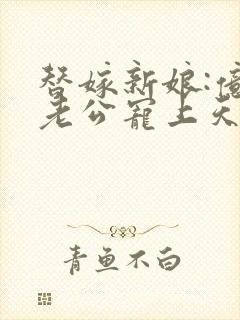 替嫁新娘:
老公宠上天
青鱼不白